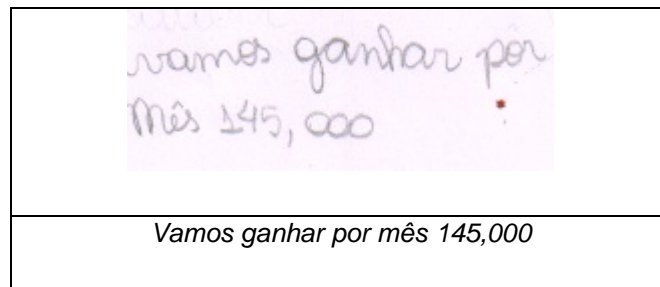 vamos ganhar por
Mês 145,000
Vamos ganhar por mês 145,000